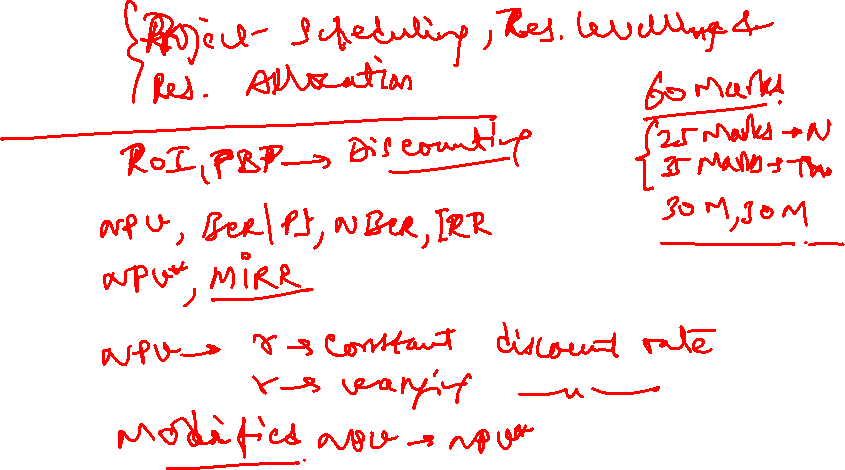 Project Scheduling, Res. Levelling &
Res. Allocation
60 Marks
25 Marks → N
35 Marks → Th
30 M, 30 M
ROI, PBP → Discounting
NPV, BCR/PI, NBCR, IRR
NPV*, MIRR
NPV → r → constant discount rate
r → varying —〃—
Modified NPV → NPV*